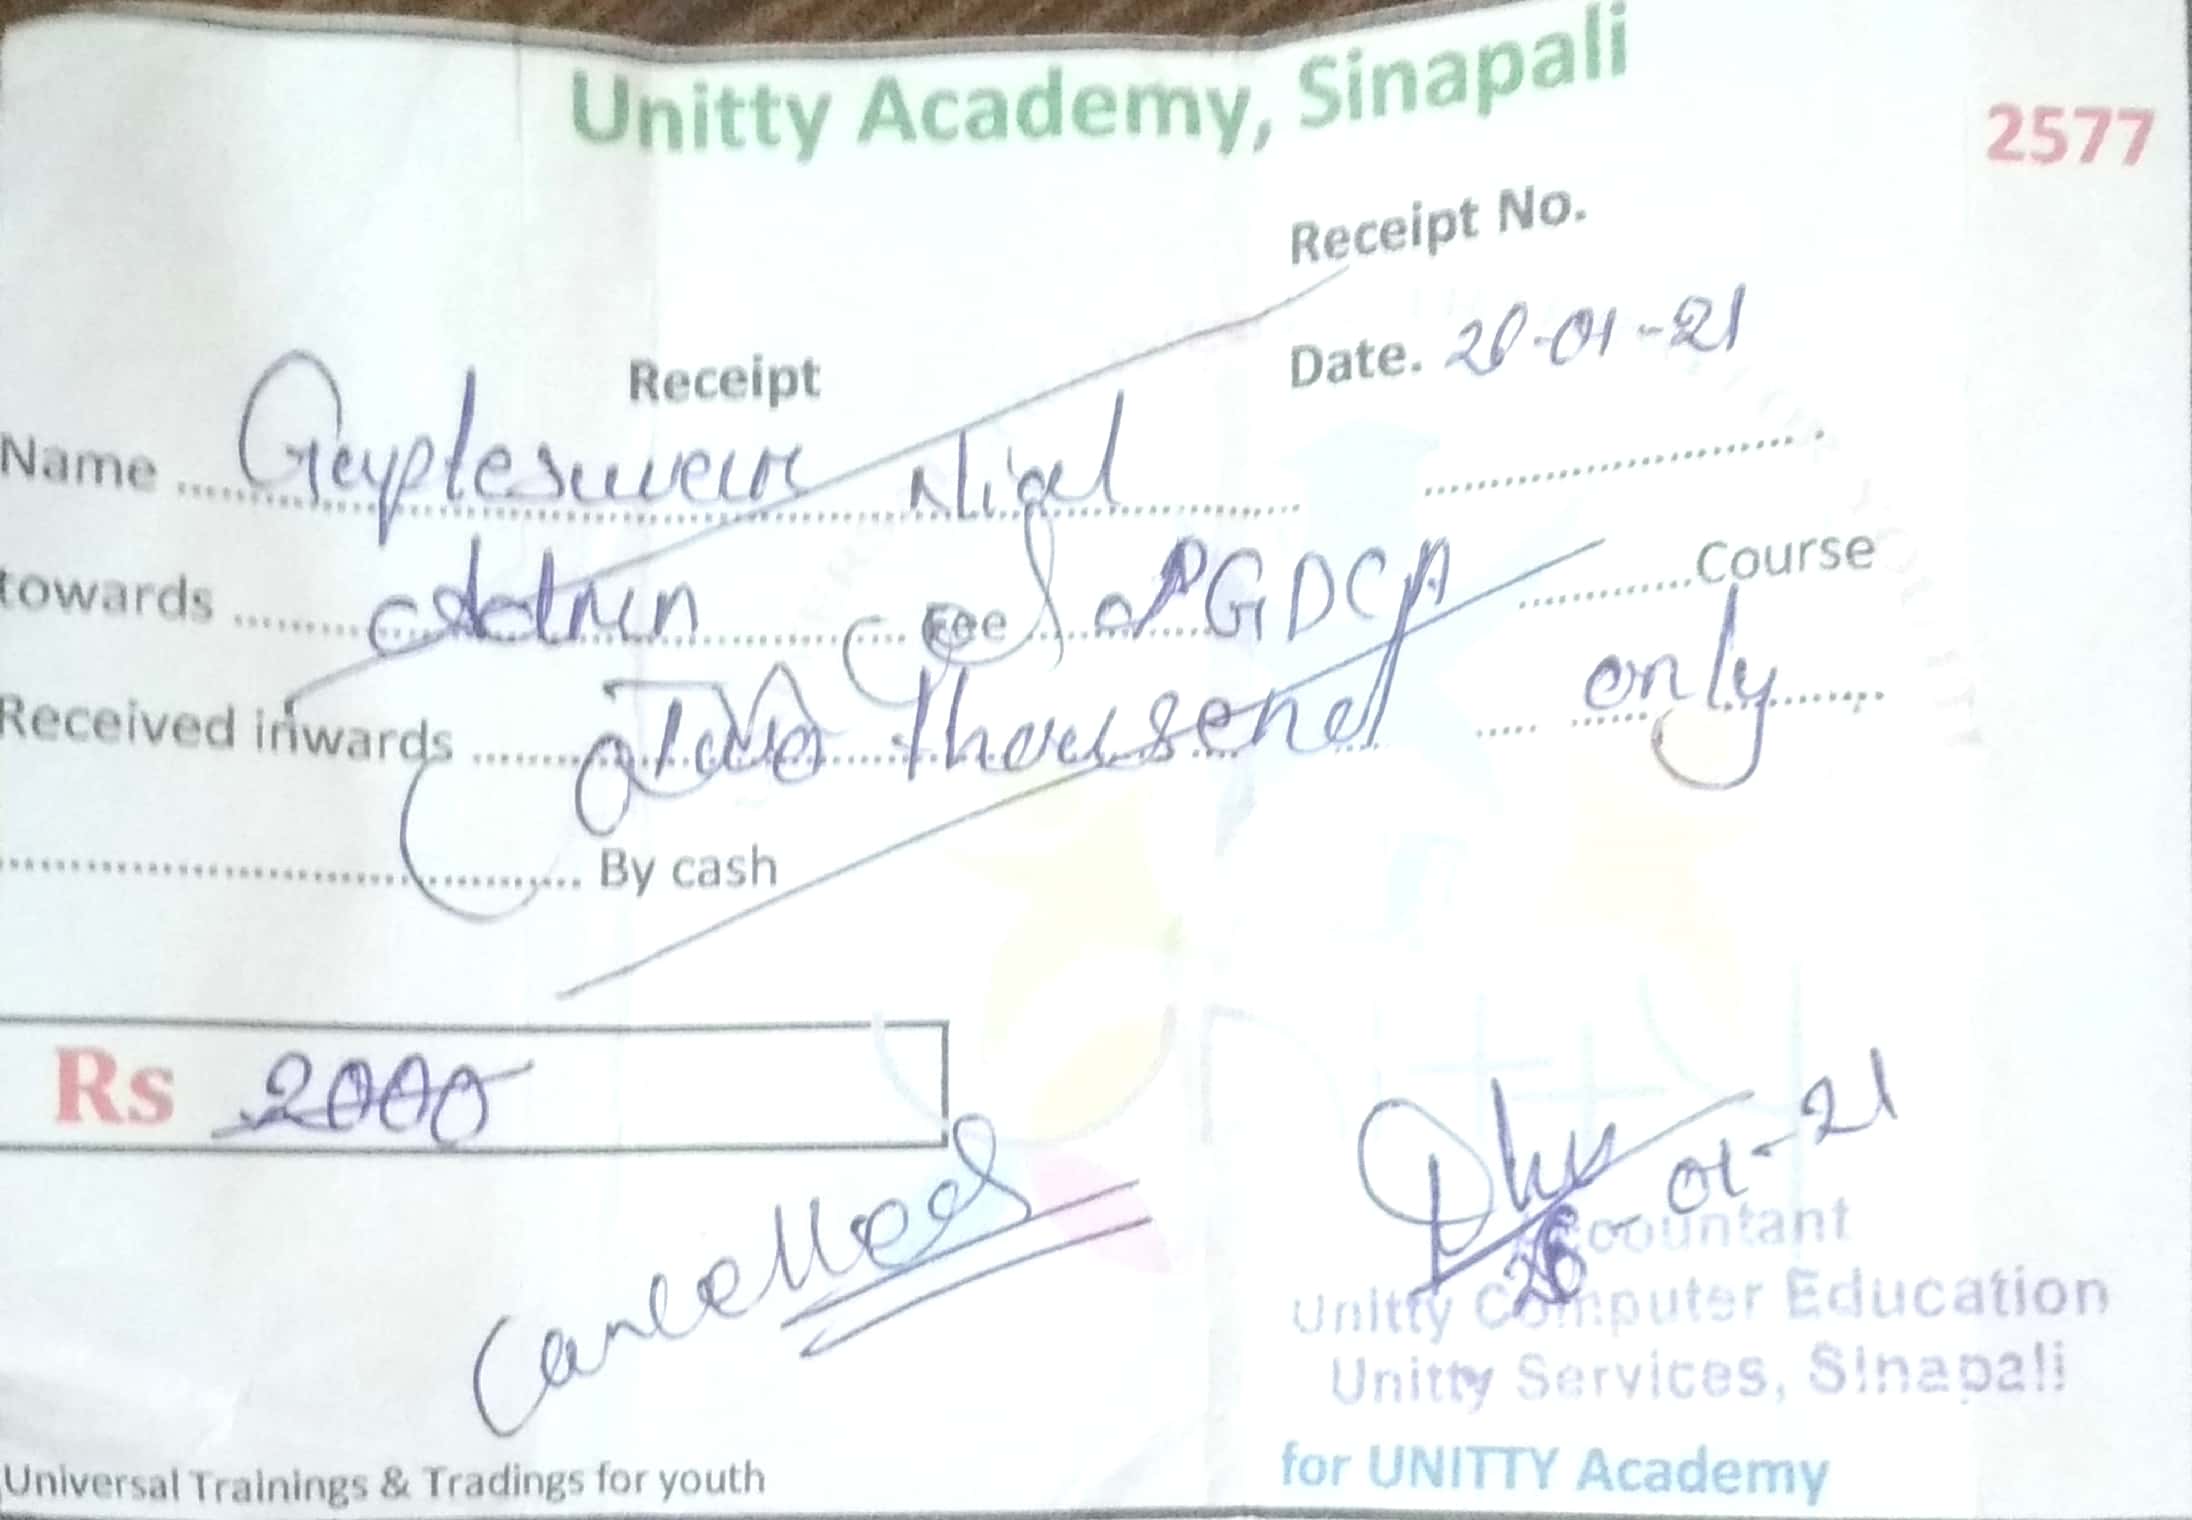 Unitty Academy, Sinapali
2577
Receipt No.
Receipt
Date. 20-01-21
Name ........ Gupteswar Nial
towards ........ Admn Fee of PGDCA ........ Course
Received inwards ........ Two thousand only
........ By cash
Rs 2000
Cancelled
26-01-21
Accountant
Unitty Computer Education
Unitty Services, Sinapali
Universal Trainings & Tradings for youth
for UNITTY Academy